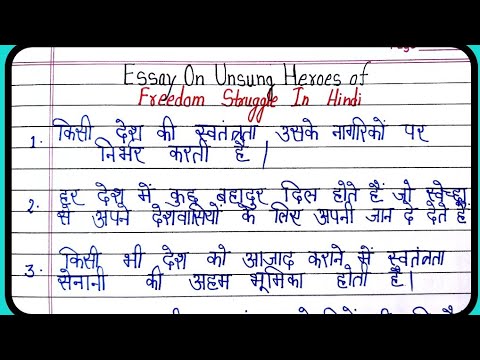 Essay On Unsung Heroes of
Freedom Struggle In Hindi
1. किसी देश की स्वतंत्रता उसके नागरिकों पर
निर्भर करती है |
2. हर देश में कुछ बहादुर दिल होते हैं जो स्वेच्छा
से अपने देशवासियों के लिए अपनी जान दे देते हैं
3. किसी भी देश को आजाद कराने में स्वतंत्रता
सेनानी की अहम भूमिका होती है |